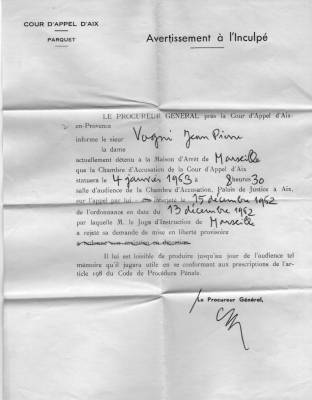 COUR D'APPEL D'AIX
PARQUET
Avertissement à l'Inculpé
LE PROCUREUR GÉNÉRAL près la Cour d'Appel d'Aix-
en-Provence
informe le sieur Vagni Jean Pierre
la dame
actuellement détenu à la Maison d'Arrêt de Marseille
que la Chambre d'Accusation de la Cour d'Appel d'Aix
statuera le 4 janvier 1963 à 8 heures 30
salle d'audience de la Chambre d'Accusation, Palais de Justice à Aix,
sur l'appel par lui interjeté le 15 décembre 1962
de l'ordonnance en date du 13 décembre 1962
par laquelle M. le Juge d'Instruction de Marseille
a rejeté sa demande de mise en liberté provisoire
Il lui est loisible de produire jusqu'au jour de l'audience tel
mémoire qu'il jugera utile en se conformant aux prescriptions de l'ar-
ticle 198 du Code de Procédure Pénale.
Le Procureur Général,